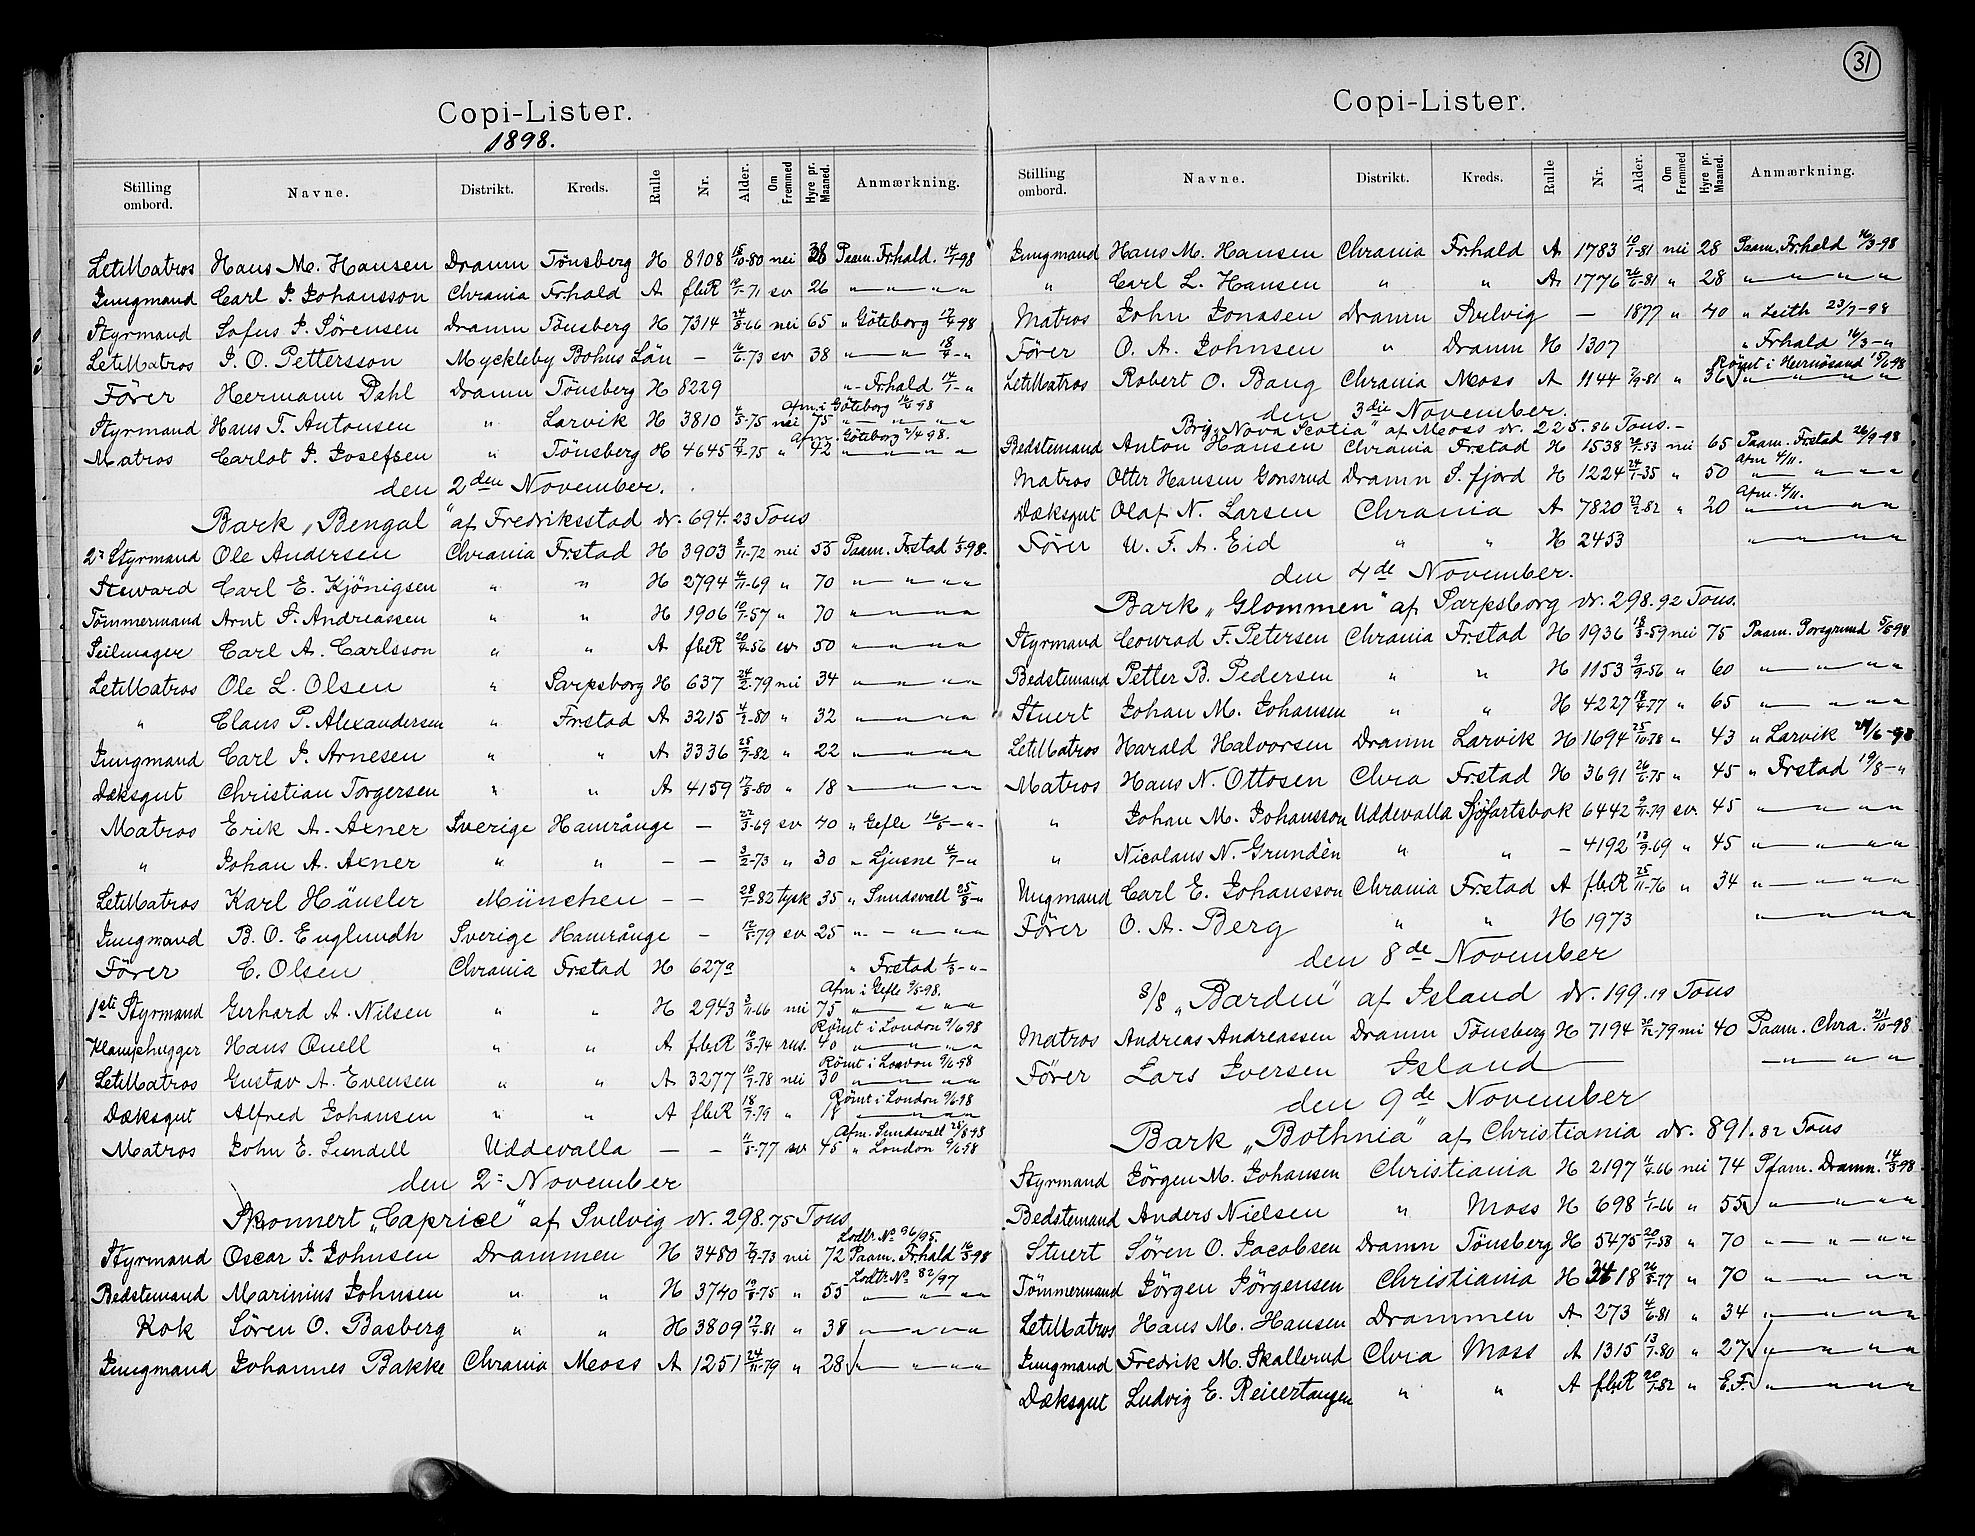 Copi-Lister.
1898.
Stilling ombord. Navne. Distrikt. Kreds. Rulle Nr. Alder. Om Fremmed Hyre pr. Maaned. Anmærkning.
LetMatros Hans M. Hansen Dramn Tönsberg H 8108 15/10-80 nei 38 Paam. Frhald. 14/7-98
Jungmand Carl J. Johansson Chrania Frhald A fbR 12/7-71 sv 26 " " " "
Styrmand Sofus J. Sörensen Dramn Tönsberg H 7314 24/8-66 nei 65 " Göteborg 12/9-98
LetMatros J. O. Pettersson Myckleby Bohus Län – 16/6-73 sv 38 " " 18/9-"
Förer Hermann Dahl Dramn Tönsberg H 8229 "-Frhald 14/7-"
Afm. i Göteborg 16/6 98
Styrmand Hans T. Antonsen " Larvik H 3810 4/5-75 nei 75 " " " "
Afm. Göteborg 2/4 98.
Matros Carlot J. Josefsen " Tönsberg H 4645 17/9-75 " 42 " " " "
den 2den November.
Bark "Bengal" af Fredriksstad dr. 694.23 Tons
2n Styrmand Ole Andersen Chrania Frstad H 3903 8/11-72 nei 55 Paam. Frstad 1/3-98.
Steward Carl E. Kjönigsen " " H 2794 4/11-69 " 70 " " " "
Tömmermand Arnt S. Andreassen " " H 1906 10/1-57 " 70 " " " "
Seilmager Carl A. Carlsson " " A fbR 20/2-56 sv 50 " " " "
LetMatros Ole L. Olsen " Sarpsborg H 637 24/2-79 nei 34 " " " "
" Claus P. Alexandersen " Frstad A 3215 4/2-80 " 32 " " " "
Jungmand Carl J. Arnesen " " A 3336 25/7-82 " 22 " " " "
Dæksgut Christian Torgersen " " A 4159 17/3-80 " 18 " " " "
Matros Erik A. Axner Sverige Hamrånge – 22/3-69 sv 40 " Gefle 16/5-"-
" Johan A. Axner " " – – 3/2-73 " 30 " Ljusne 4/7-"
LetMatros Karl Häusler München – – 28/7-82 tysk 35 " Sundsvall 25/8-"
Jungmand B. O. Euglundh Sverige Hamrånge – 12/6-79 sv 25 " " " "
Förer C. Olsen Chrania Frstad H 627a " Frstad 1/3-"-
Afm i Gefle 9/5-98.
1ste Styrmand Gerhard A. Nilsen " " H 2943 3/11-66 nei 75 " " " "
Römt i London 9/6 98
Klamphugger Hans Quell " " A fbR 10/3-74 rus. 40 " " " "
Römt i London 9/6-98
LetMatros Gustav A. Evensen " " A 3277 10/9-78 nei 30 " " " "
Römt i London 9/6-98
Dæksgut Alfred Johansen " " A fbR 18/7-79 " 18 " " " "
Afm. Sundsvall 25/8 98
Matros John E. Lundell Uddevalla – – 11/8-77 sv 45 " London 9/6-98
den 2: November
Skonnert "Caprice" af Svelvig dr. 298.75 Tons
Lodtr No 96/95.
Styrmand Oscar J. Johnsen Drammen H 3480 7/9-73 nei 72 Paam. Frhald 16/3-98
Lodtr No 82/97
Bedstemand Marinius Johnsen " " H 3740 19/8-75 " 55 " " "
Kok Sören O. Basberg " " H 3809 17/9-81 " 38 " " " "
Jungmand Johannes Bakke Chrania Moss A 1251 24/11-79 " 28 " " " "
31
Copi-Lister.
Stilling ombord. Navne. Distrikt. Kreds. Rulle Nr. Alder. Om Fremmed Hyre pr. Maaned. Anmærkning.
Jungmand Hans M. Hansen Chrania Frhald A 1783 10/7-81 nei 28 Paam. Frhald 16/3-98
" Carl L. Hansen " " A 1776 26/6-81 " 28 " " " "
Matros John Jonasen Dramn Svelvig – 1877 " 40 " Leith 23/7-98
Förer O. A. Johnsen " Dramn H 1307 " Frhald 16/3-"
Römt i Hernösand 15/6 98
LetMatros Robert O. Bang Chrania Moss A 1144 7/9-81 " 36 " " " "
den 3die November.
Brig "Nova Scotia" af Moss dr. 225.86 Tons.-
Bedstemand Anton Hansen Chrania Frstad H 1538 20/7-53 nei 65 Paam. Frstad 26/9-98
Afm 4/11.
Matros Otter Hansen Gonsrud Dramn S.fjord H 1224 24/7-35 " 50 " " " "
Afm. 4/11.
Dæksgut Olaf N. Larsen Chrania A 7820 22/2-82 " 20 " " " "
Förer U. F. A. Eid " " H 2453 " " " "
den 4de November.
Bark "Glommen" af Sarpsborg dr. 298.92 Tons.
Styrmand Conrad F. Petersen Chrania Frstad H 1936 18/3-59 nei 75 Paam. Porsgrund 5/6 98
Bedstemand Petter B. Pedersen " " H 1153 9/9-56 " 60 " " " "
Stuert Johan M. Johansen " " H 4227 18/4-77 " 65 " " " "
LetMatros Harald Halvorsen Dramn Larvik H 1694 25/10-78 " 43 " Larvik 24/6-98
Matros Hans N. Ottosen Chra Frstad H 3691 26/6-75 " 45 " Frstad 19/8-"
" Johan M. Johansson Uddevalla Sjöfartsbok 6442 9/11-79 sv. 45 " " " "
" Nicolaus N. Grundèn " " – 4192 13/9-69 " 45 " " " "
Ungmand Carl E. Johansson Chrania Frstad A fbR 25/11-76 " 34 " " " "
Förer O. A. Berg " " H 1973 " " " "
den 8de November
S/S "Barden" af Island dr. 199.19 Tons
Matros Andreas Andreassen Dramn Tönsberg H 7194 20/12-79 nei 40 Paam. Chra. 21/10-98
Förer Lars Iversen Island " " "
den 9de November
Bark "Bothnia" af Christiania dr. 891.82 Tons
Styrmand Jörgen M. Johansen Christiania H 2197 11/9-66 nei 74 Paam. Dramn. 14/3-98
Bedstemand Anders Nielsen " Moss H 698 1/1-66 " 55 " " " "
Stuert Sören O. Jacobsen Dramn Tönsberg H 5475 20/1-58 " 70 " " " "
Tömmermand Jörgen Jörgensen Christiania H 3418 26/8-77 " 70 " " " "
LetMatros Hans M. Hansen Drammen A 273 4/6-81 " 34 " " " "
Jungmand Fredrik M. Skallerud Chria Moss A 1315 13/7-80 " 27 " " " "
Dæksgut Ludvig E. Reiertangen " " A fbR 20/1-82 " E.F. " " " "